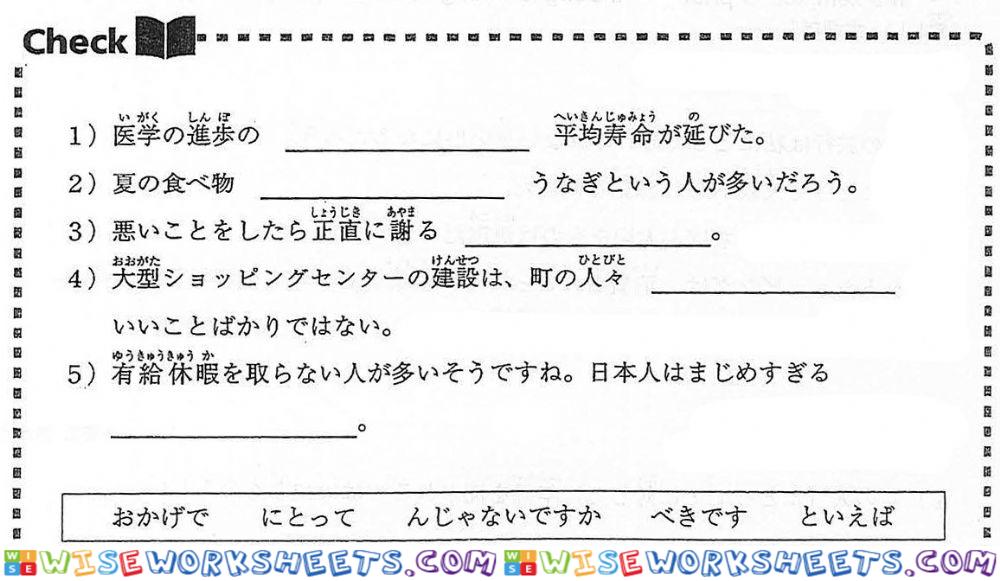 Check
1）医学の進歩の ＿＿＿＿＿＿ 平均寿命が延びた。
2）夏の食べ物 ＿＿＿＿＿＿ うなぎという人が多いだろう。
3）悪いことをしたら正直に謝る ＿＿＿＿＿＿。
4）大型ショッピングセンターの建設は、町の人々 ＿＿＿＿＿＿
いいことばかりではない。
5）有給休暇を取らない人が多いそうですね。日本人はまじめすぎる
＿＿＿＿＿＿。
おかげで にとって んじゃないですか べきです といえば
WISEWORKSHEETS.COM WISEWORKSHEETS.COM